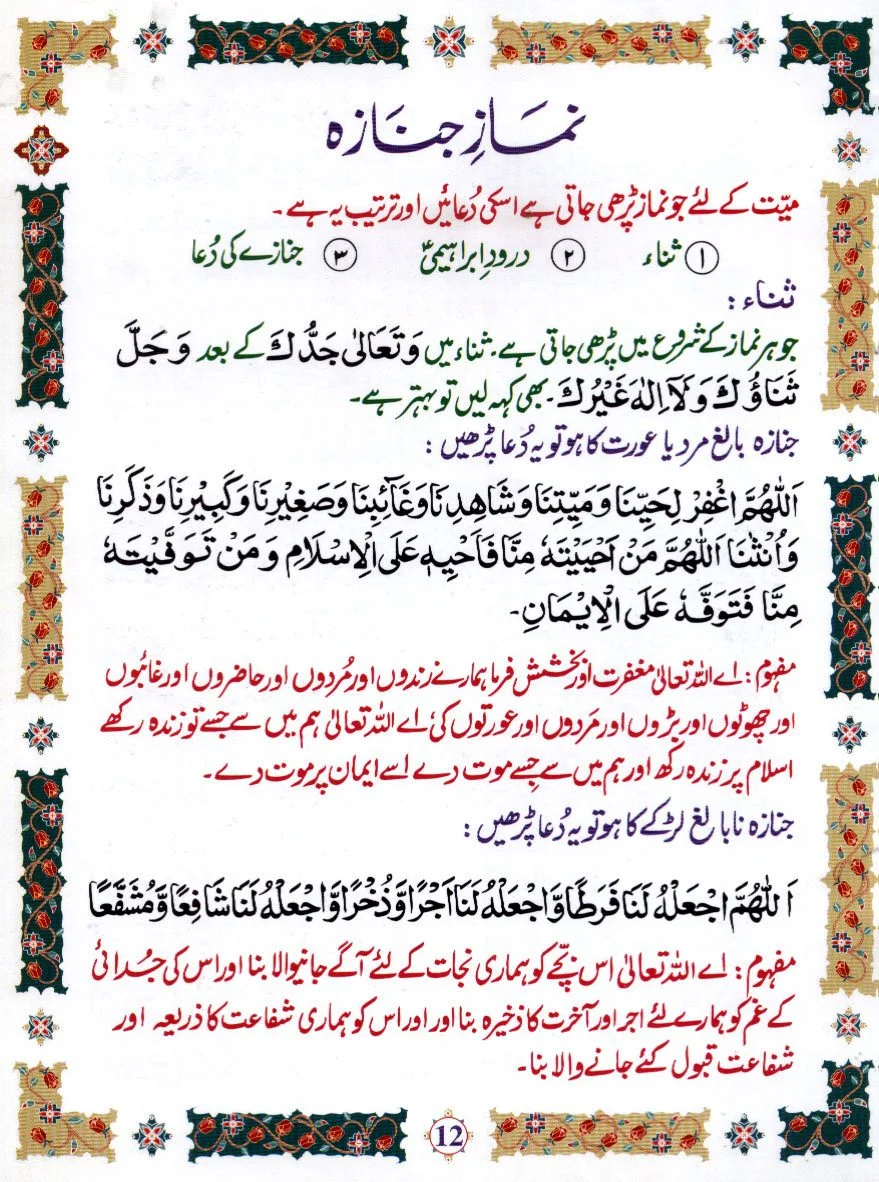 نمازِ جنازہ
میّت کے لئے جو نماز پڑھی جاتی ہے اسکی دُعائیں اور ترتیب یہ ہے۔
۱ ثناء ۲ درودِ ابراہیمیؑ ۳ جنازے کی دُعا
ثناء :
جو ہر نماز کے شروع میں پڑھی جاتی ہے۔ ثناء میں وَتَعَالٰی جَدُّكَ کے بعد وَجَلَّ
ثَنَاؤُكَ وَلَآ اِلٰهَ غَیْرُكَ۔ بھی کہہ لیں تو بہتر ہے۔
جنازہ بالغ مرد یا عورت کا ہو تو یہ دُعا پڑھیں :
اَللّٰهُمَّ اغْفِرْ لِحَیِّنَا وَمَیِّتِنَا وَشَاهِدِنَا وَغَآئِبِنَا وَصَغِیْرِنَا وَكَبِیْرِنَا وَذَكَرِنَا
وَاُنْثٰنَا اَللّٰهُمَّ مَنْ اَحْیَیْتَهٗ مِنَّا فَاَحْیِهٖ عَلَی الْاِسْلَامِ وَمَنْ تَوَفَّیْتَهٗ
مِنَّا فَتَوَفَّهٗ عَلَی الْاِیْمَانِ۔
مفہوم : اے اللہ تعالیٰ مغفرت اور بخشش فرما ہمارے زندوں اور مُردوں اور حاضروں اور غائبوں
اور چھوٹوں اور بڑوں اور مَردوں اور عورتوں کی، اے اللہ تعالیٰ ہم میں سے جسے تو زندہ رکھے
اسلام پر زندہ رکھ اور ہم میں سے جسے موت دے اسے ایمان پر موت دے۔
جنازہ نابالغ لڑکے کا ہو تو یہ دُعا پڑھیں :
اَللّٰهُمَّ اجْعَلْهُ لَنَا فَرَطًا وَّاجْعَلْهُ لَنَا اَجْرًا وَّذُخْرًا وَّاجْعَلْهُ لَنَا شَافِعًا وَّمُشَفَّعًا
مفہوم : اے اللہ تعالیٰ اس بچّے کو ہماری نجات کے لئے آگے جانیوالا بنا اور اس کی جُدائی
کے غم کو ہمارے لئے اجر اور آخرت کا ذخیرہ بنا اور اور اس کو ہماری شفاعت کا ذریعہ اور
شفاعت قبول کئے جانے والا بنا۔
12